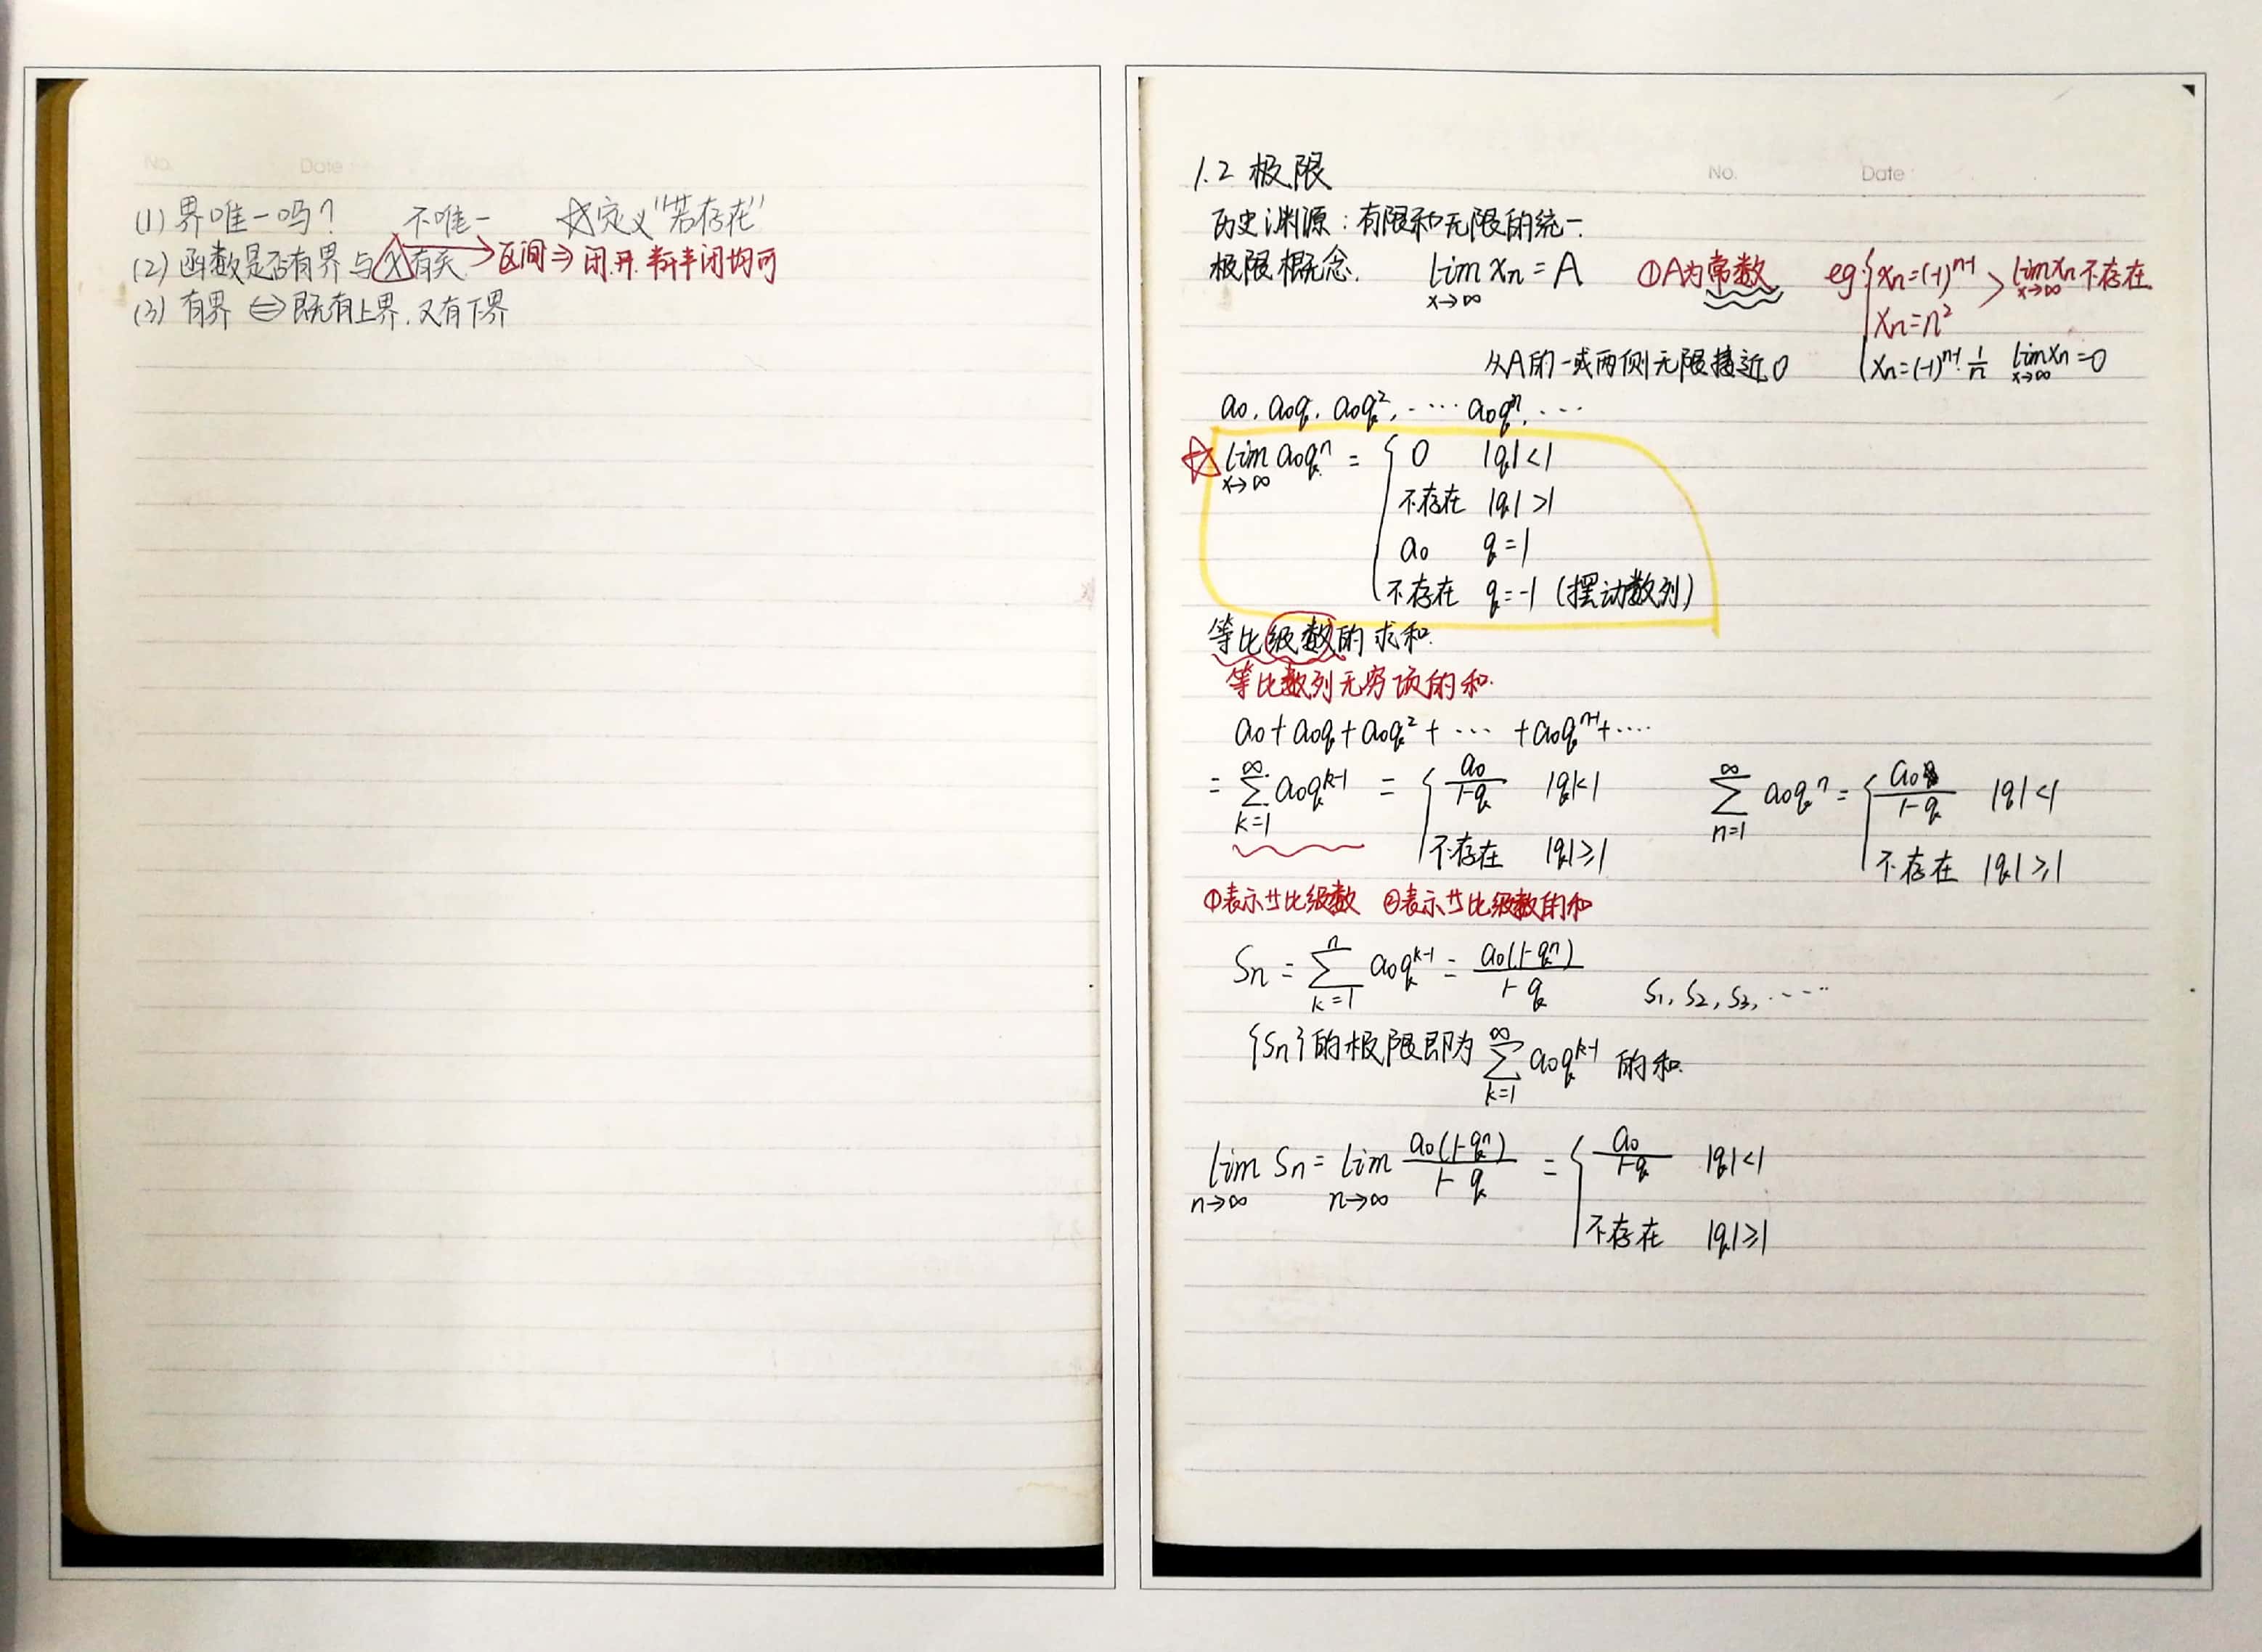 No. Date
(1) 界唯一吗? 不唯一 ☆定义"若存在"
(2) 函数是否有界与X有关 → 区间 ⇒ 闭.开.半开半闭均可
(3) 有界 ⇔ 既有上界.又有下界
No. Date
1.2 极限
历史渊源:有限和无限的统一.
极限概念. lim x→∞ xn = A ①A为常数 eg { xn=(-1)^{n-1} > lim x→∞ xn 不存在
xn=n²
从A的一或两侧无限接近0 xn=(-1)^{n-1}·1/n lim x→∞ xn=0
a0, a0q, a0q², ···· a0q^n, ···
☆ lim x→∞ a0q^n = { 0 |q|<1
不存在 |q|>1
a0 q=1
不存在 q=-1 (摆动数列)
等比级数的求和.
等比数列无穷项的和.
a0+a0q+a0q²+ ··· +a0q^{n-1}+····
= ∑_{k=1}^{∞} a0q^{k-1} = { a0/(1-q) |q|<1 ∑_{n=1}^{∞} a0q^n = { a0/(1-q) |q|<1
不存在 |q|≥1 不存在 |q|≥1
①表示比级数 ②表示比级数的和
Sn = ∑_{k=1}^{n} a0q^{k-1} = a0(1-q^n)/(1-q) S1, S2, S3, ·····
{Sn}的极限即为 ∑_{k=1}^{∞} a0q^{k-1} 的和.
lim n→∞ Sn = lim n→∞ a0(1-q^n)/(1-q) = { a0/(1-q) |q|<1
不存在 |q|≥1